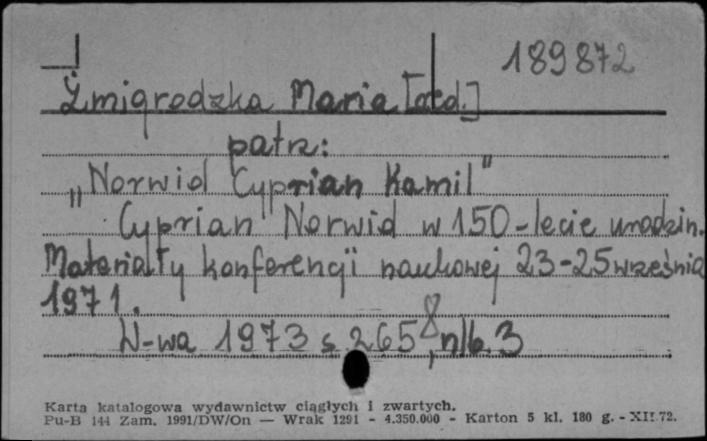 189872
Żmigrodzka Maria [red.]
patrz:
„Norwid Cyprian Kamil"
Cyprian Norwid w 150-lecie urodzin.
Materiały konferencji naukowej 23-25 września
1971.
W-wa 1973 s 265, nlb. 3
Karta katalogowa wydawnictw ciągłych i zwartych.
Pu-B 144 Zam. 1991/DW/On — Wrak 1291 - 4.350.000 - Karton 5 kl. 180 g. - XII.72.